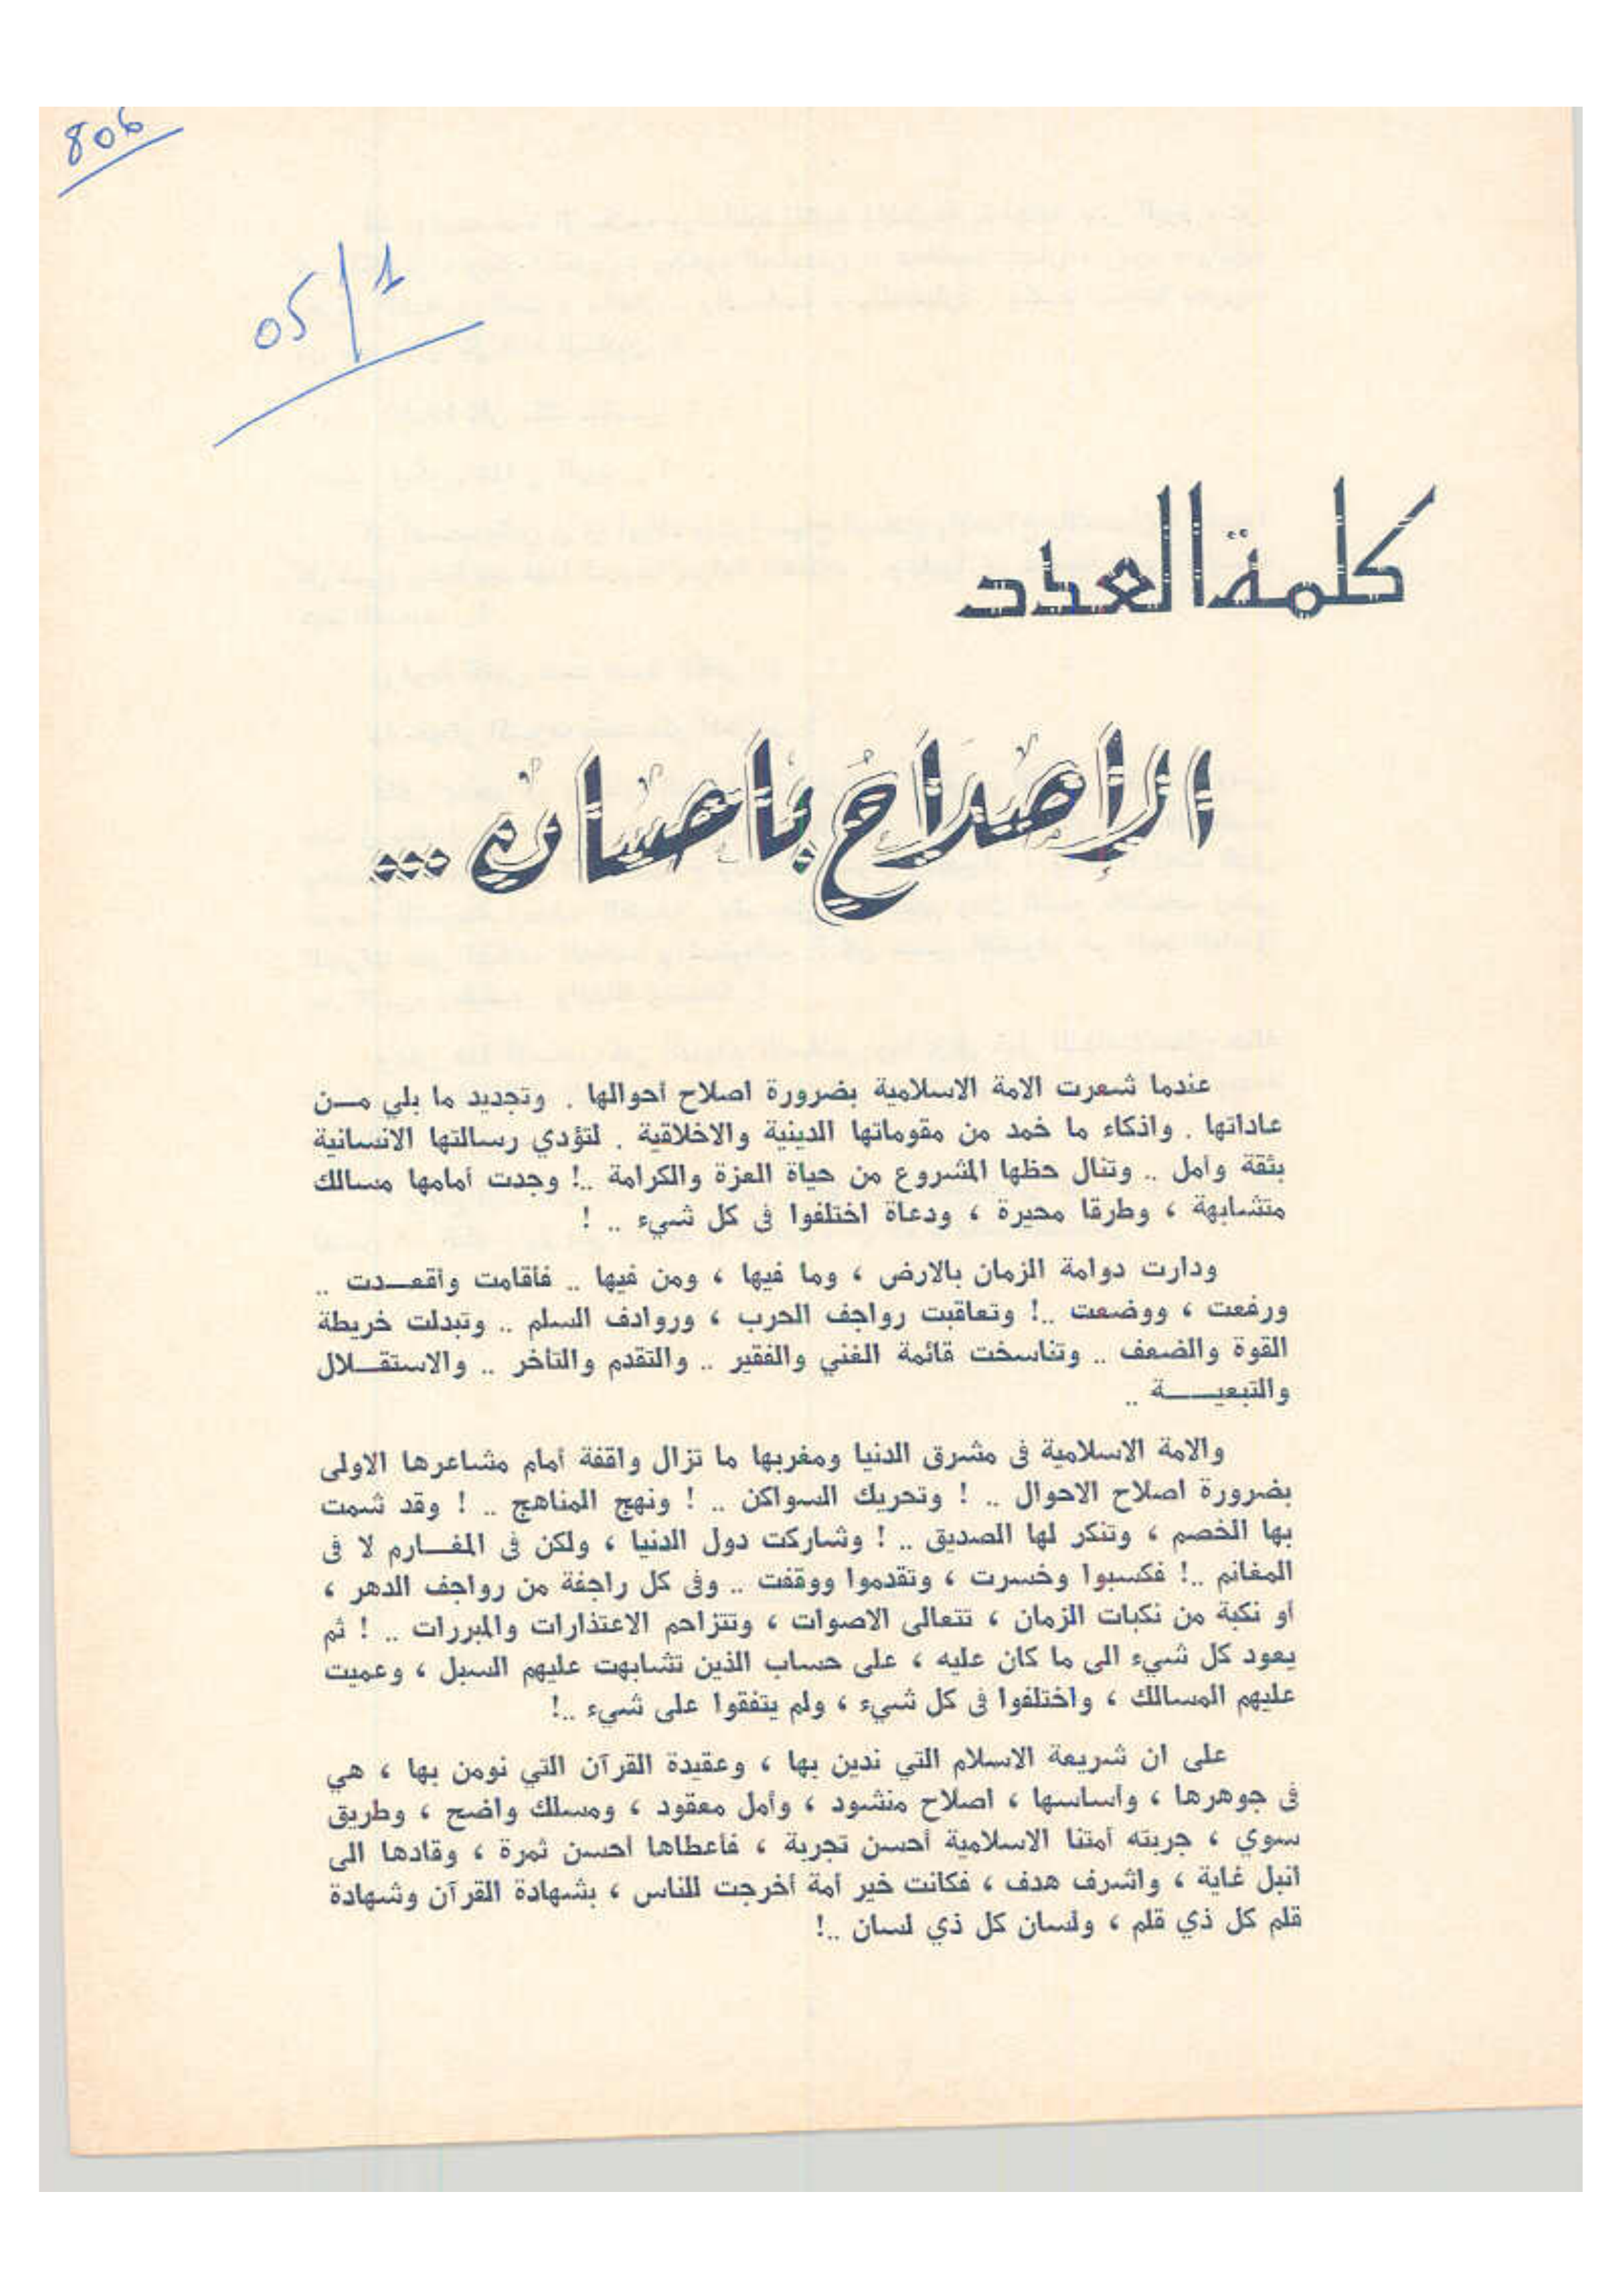 806
05/1
كلمة العدد
الإصلاح بإحسان ...
عندما شعرت الامة الاسلامية بضرورة اصلاح أحوالها . وتجديد ما بلي مـــن
عاداتها . واذكاء ما خمد من مقوماتها الدينية والاخلاقية . لتؤدي رسالتها الانسانية
بثقة وأمل .. وتنال حظها المشروع من حياة العزة والكرامة ..! وجدت أمامها مسالك
متشابهة ، وطرقا محيرة ، ودعاة اختلفوا فى كل شيء .. !
ودارت دوامة الزمان بالارض ، وما فيها ، ومن فيها .. فأقامت وأقعـــدت ..
ورفعت ، ووضعت ..! وتعاقبت رواجف الحرب ، وروادف السلم .. وتبدلت خريطة
القوة والضعف .. وتناسخت قائمة الغني والفقير .. والتقدم والتأخر .. والاستقـــلال
والتبعيـــــة ..
والامة الاسلامية فى مشرق الدنيا ومغربها ما تزال واقفة أمام مشاعرها الاولى
بضرورة اصلاح الاحوال .. ! وتحريك السواكن .. ! ونهج المناهج .. ! وقد شمت
بها الخصم ، وتنكر لها الصديق .. ! وشاركت دول الدنيا ، ولكن فى المغـــارم لا فى
المغانم ..! فكسبوا وخسرت ، وتقدموا ووقفت .. وفى كل راجفة من رواجف الدهر ،
أو نكبة من نكبات الزمان ، تتعالى الاصوات ، وتتزاحم الاعتذارات والمبررات .. ! ثم
يعود كل شيء الى ما كان عليه ، على حساب الذين تشابهت عليهم السبل ، وعميت
عليهم المسالك ، واختلفوا فى كل شيء ، ولم يتفقوا على شيء ..!
على ان شريعة الاسلام التي ندين بها ، وعقيدة القرآن التي نومن بها ، هي
فى جوهرها ، وأساسها ، اصلاح منشود ، وأمل معقود ، ومسلك واضح ، وطريق
سوي ، جربته أمتنا الاسلامية أحسن تجربة ، فأعطاها أحسن ثمرة ، وقادها الى
أنبل غاية ، واشرف هدف ، فكانت خير أمة أخرجت للناس ، بشهادة القرآن وشهادة
قلم كل ذي قلم ، ولسان كل ذي لسان ..!